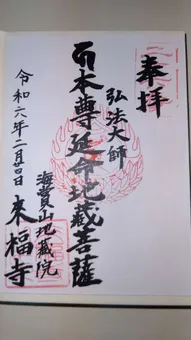 奉拝
弘法大師
本尊延命地蔵菩薩
海賞山地蔵院
来福寺
令和六年二月吉日